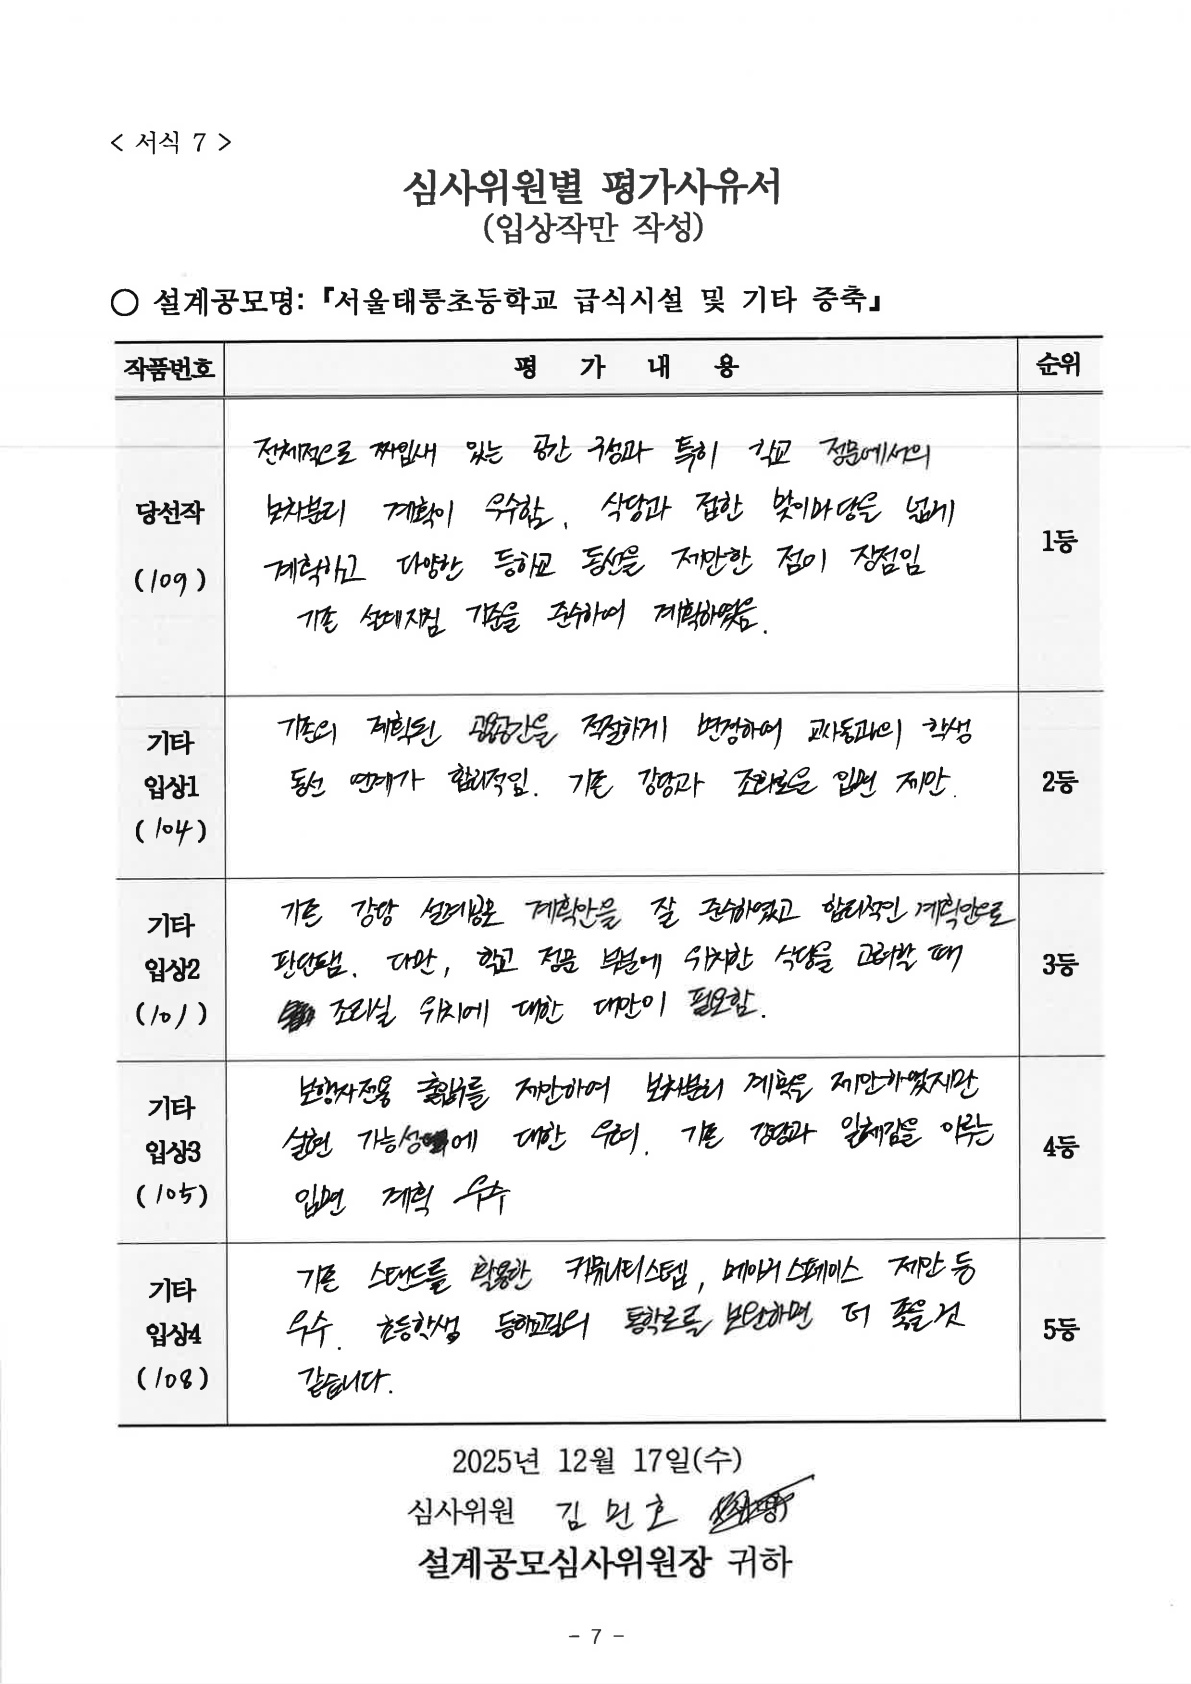 < 서식 7 >
심사위원별 평가사유서
(입상작만 작성)
○ 설계공모명: 『서울태릉초등학교 급식시설 및 기타 증축』
작품번호 평 가 내 용 순위
당선작
(109)
전체적으로 짜임새 있는 공간 구성과 특히 학교 정문에서의
보차분리 계획이 우수함. 식당과 접한 맞이마당을 넓게
계획하고 다양한 등하교 동선을 제안한 점이 장점임
기존 설계지침 기준을 준수하여 계획하였음.
1등
기타
입상1
(104)
기존의 계획된 공용공간을 적절하게 변경하여 교사동과의 학생
동선 연계가 합리적임. 기존 강당과 조화로운 입면 제안.
2등
기타
입상2
(101)
기존 강당 설계공모 계획안을 잘 준수하였고 합리적인 계획안으로
판단됨. 다만, 학교 정문 부분에 위치한 식당을 고려할 때
조리실 위치에 대한 대안이 필요함.
3등
기타
입상3
(105)
보행자전용 출입구를 제안하여 보차분리 계획을 제안하였지만
실현 가능성에 대한 우려. 기존 강당과 일체감을 이루는
입면 계획 우수
4등
기타
입상4
(108)
기존 스탠드를 활용한 커뮤니티스텝, 메이커스페이스 제안 등
우수. 초등학생 등하교길의 통학로를 보완하면 더 좋을것
같습니다.
5등
2025년 12월 17일(수)
심사위원 김민호
설계공모심사위원장 귀하
- 7 -